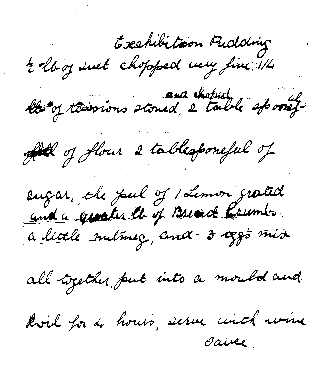 Exehibition Pudding
½ lb of suet chopped very fine, 1/4
lb of raisins stoned, and choped 2 table sponef
of flour 2 tablesponeful of
sugar, the peel of 1 Lemon grated
and a quarter lb of Bread Crumbs
a little nutmeg, and 3 eggs mix
all together put into a mould and
boil for 4 hours, serve with wine
sauce.